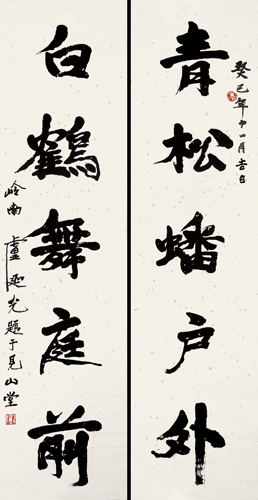 青松蟠户外
癸巳年十一月吉日
白鶴舞庭前
岭南盧延光題于見山堂